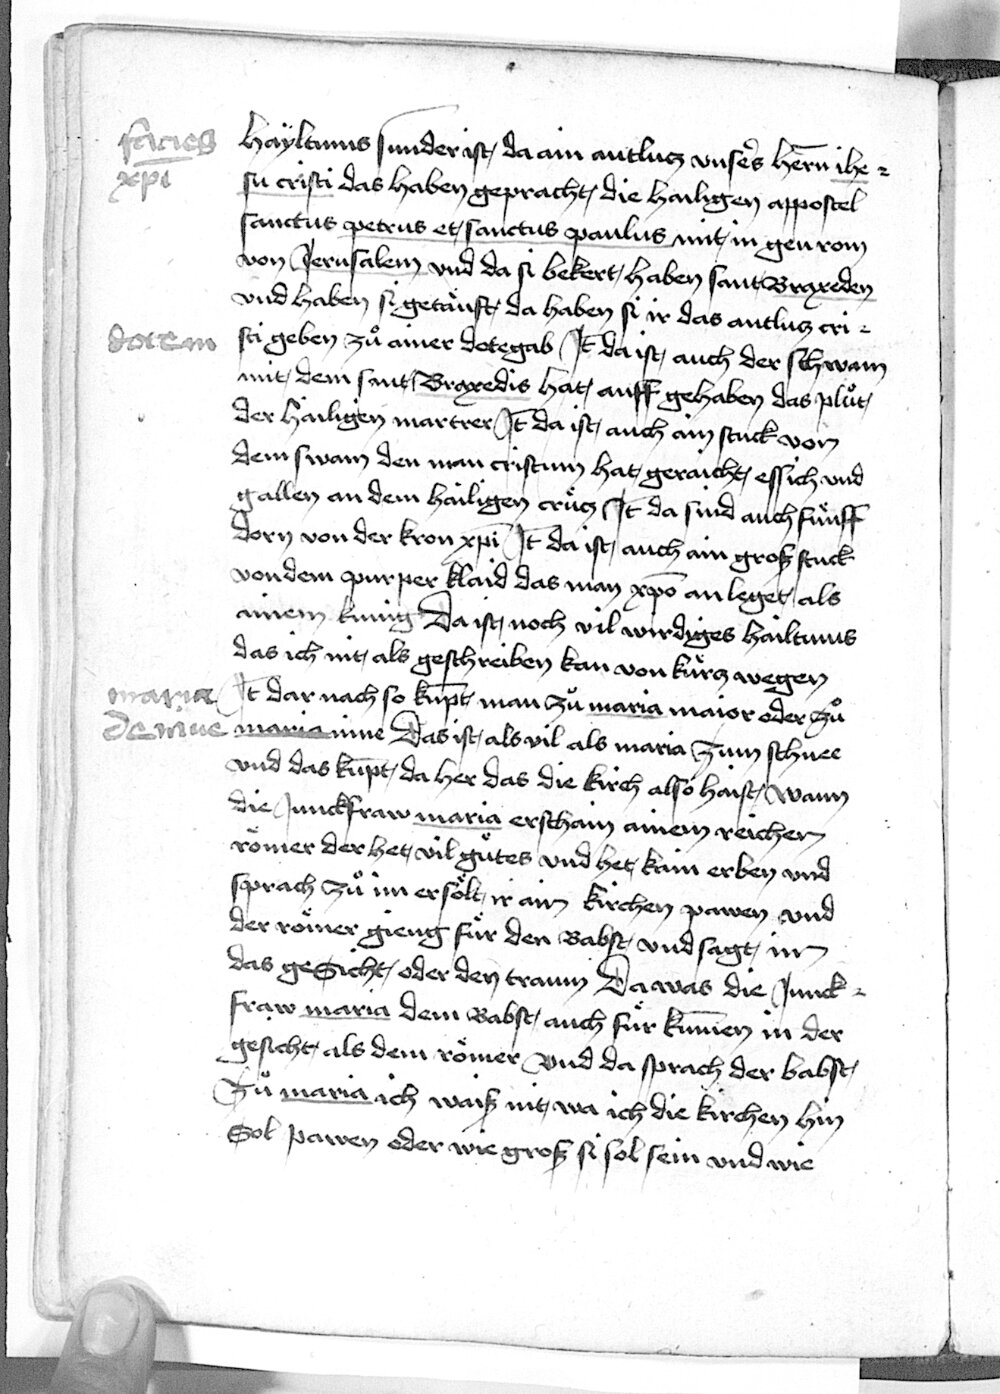 facies
xpi
Haÿltums sunder ist da ain antlucz vnsers hern ihe=
su cristi das haben gepracht die hailigen appostel
sanctus petrus et sanctus paulus mit in gen rom
von Jerusalem vnd da si bekert haben sant Braxeden
vnd haben si getäuft da haben si ir das antlucz cri=
dotem
sti geben zů ainer dotegab It da ist auch der schwam
mit dem sant Braxedis hat auff gehaben das plůt
der hailigen martrer It da ist auch ain stuck von
dem swam den man cristum hat geraicht essich vnd
gallen an dem hailigen crücz It da sind auch fünff
dorn von der kron xpi It da ist auch ain groß stuck
von dem purper klaid das man xpo an leget als
ainem kunig Da ist noch vil wirdiges hailtums
das ich nit als geschreiben kan von kürcz wegen
maria
de niue
It dar nach so kumpt man zů maria maior oder zů
maria niue Das ist als vil als maria zum schnee
vnd das kumpt da her das die kirch also haist wann
die Junckfraw maria erschain ainem reichen
römer der het vil gůtes vnd het kain erben vnd
sprach zů im er sölt ir ain kirchen pawen vnd
der römer gieng für den Babst vnd sagt im
das gesicht oder den traum Da was die Junck=
fraw maria dem Babst auch für kumen in der
gesicht als dem römer vnd da sprach der babst
Zů maria ich waiß nit wa ich die kirchen hin
Sol pawen oder wie groß si sol sein vnd wie